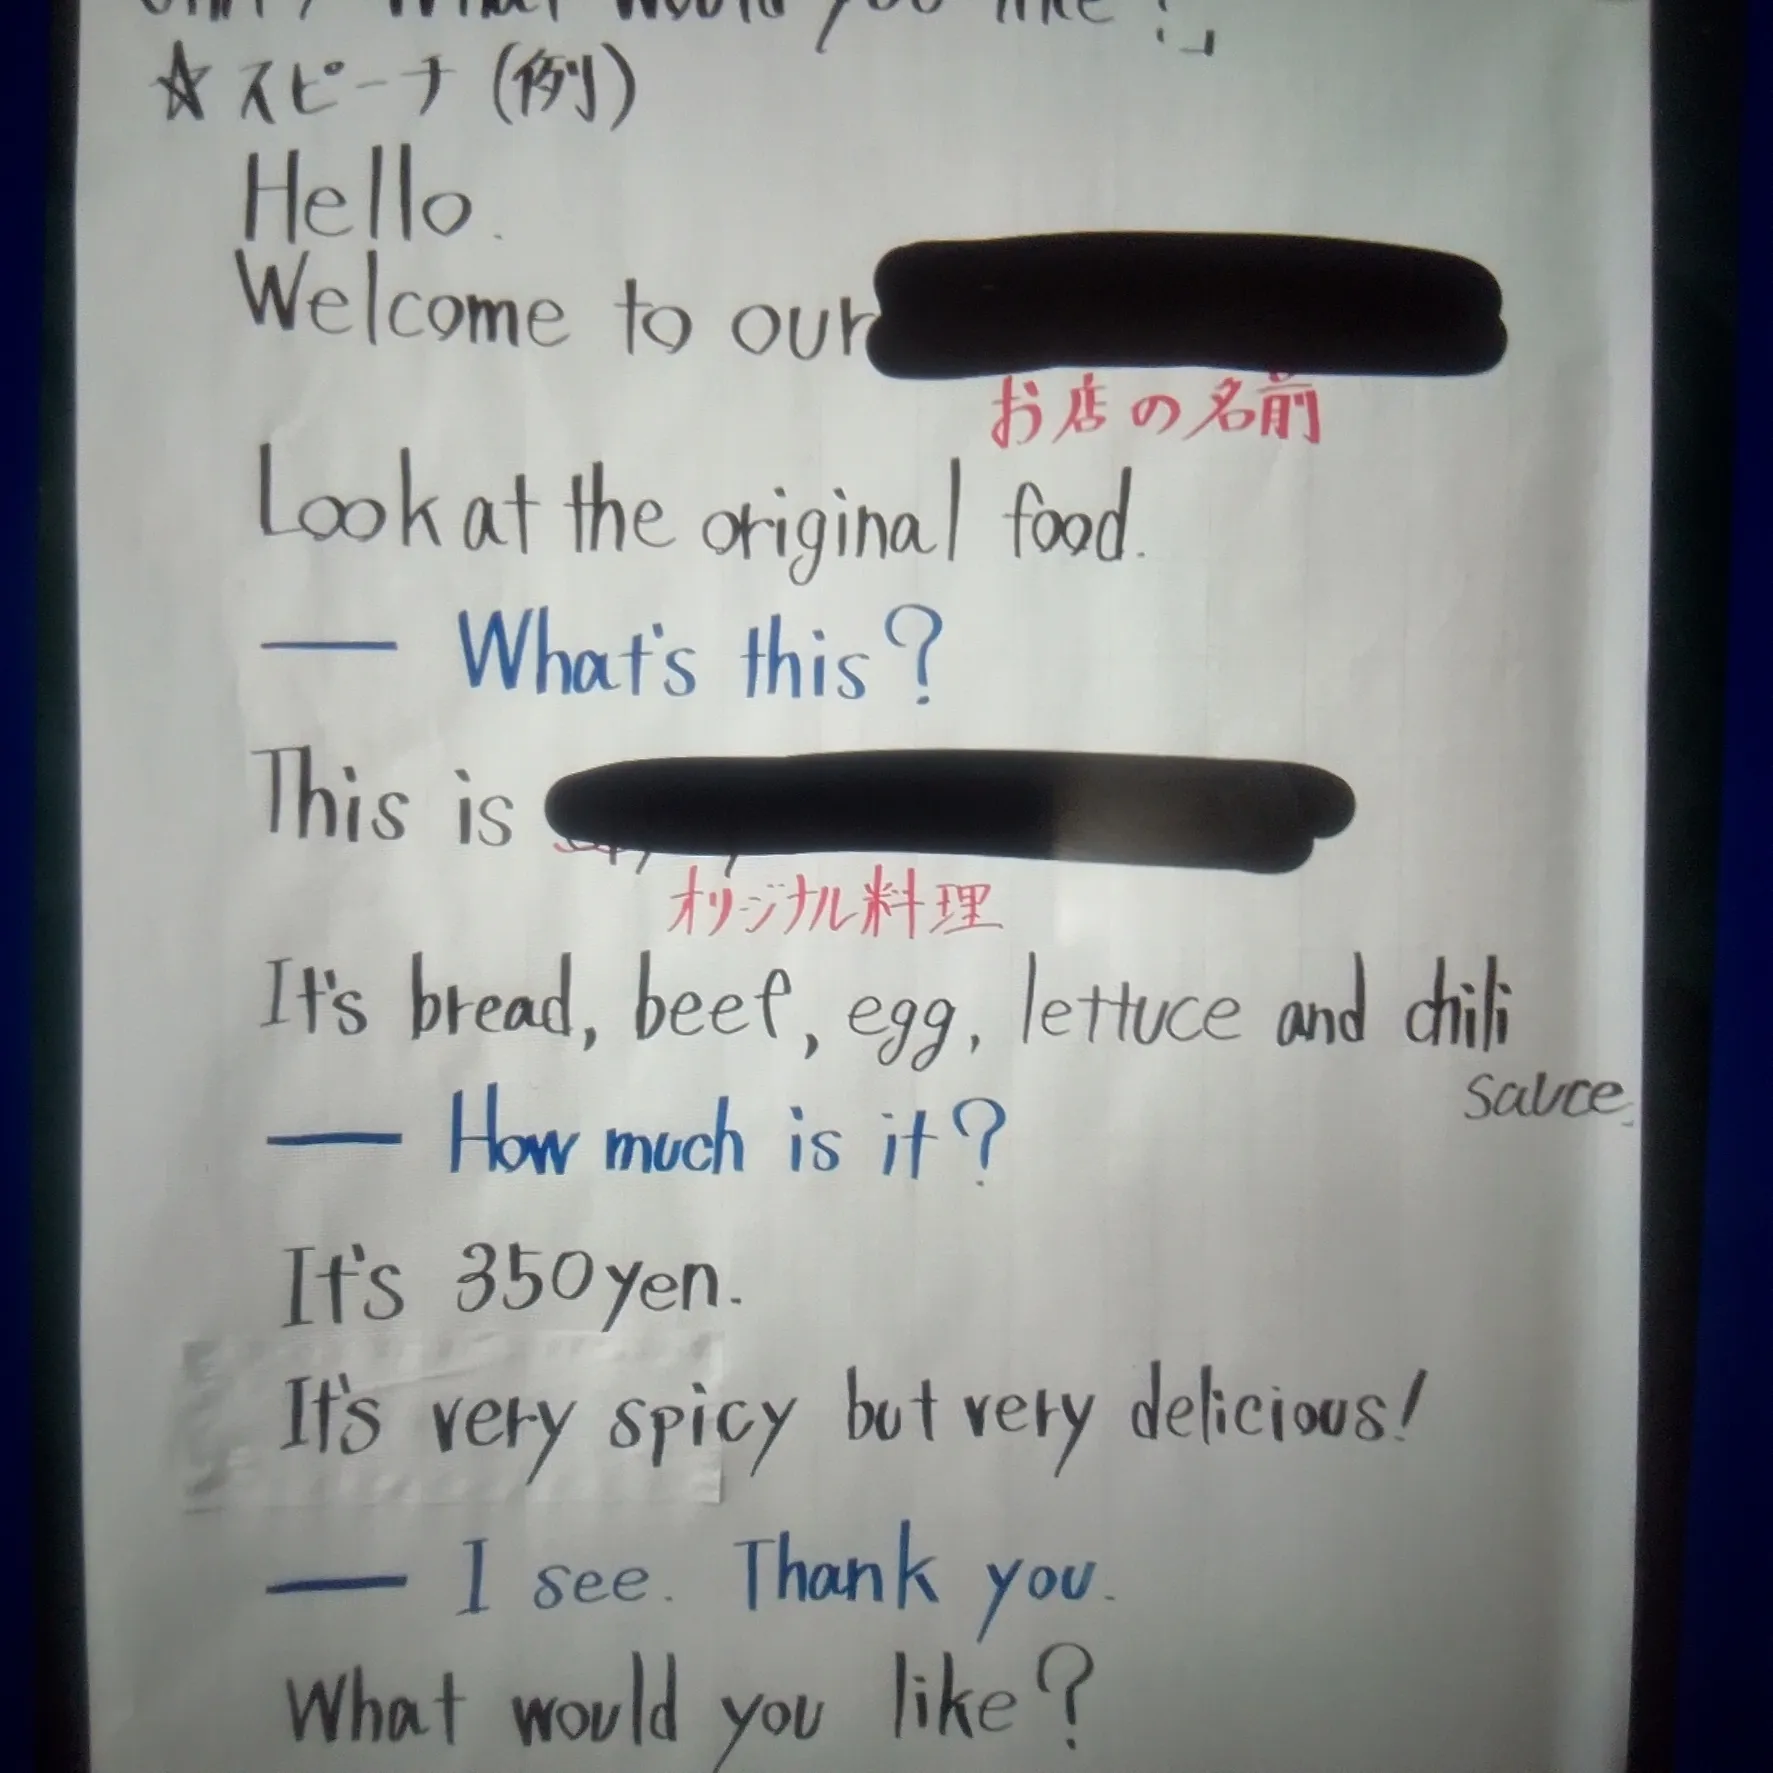 What would you like?」
☆スピーチ(例)
Hello.
Welcome to our
お店の名前
Look at the original food.
— What's this?
This is
オリジナル料理
It's bread, beef, egg, lettuce and chili
sauce.
— How much is it?
It's 350yen.
It's very spicy but very delicious!
— I see. Thank you.
What would you like?